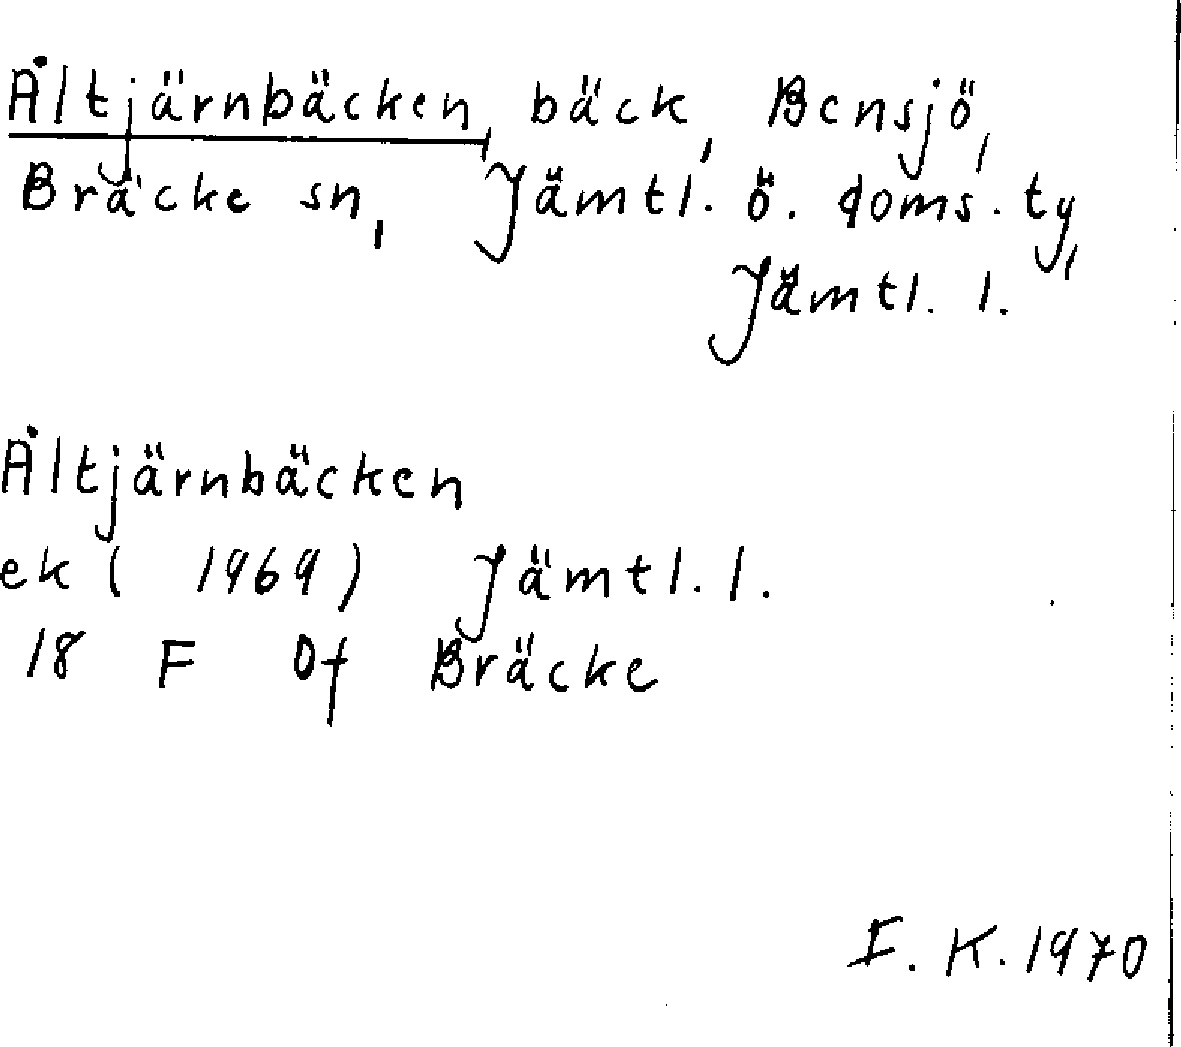 Åltjärnbäcken, bäck, Bensjö,
Bräcke sn, Jämtl. ö. doms. ty,
Jämtl. l.
Åltjärnbäcken
ek (1969) Jämtl. l.
18 F 0f Bräcke
I. K. 1970